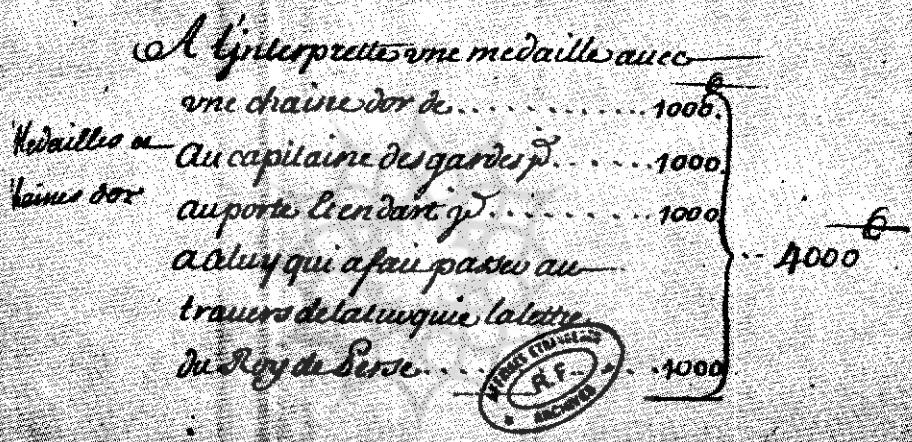 A l'interprette une medaille avec
une chaine dor de ........... 1000.
Medailles et
Au capitaine des gardes jd ...... 1000
haines dor
au porte Etendart jd ........... 1000
a celuy qui a fait passer au
... 4000
travers de la turquie la lettre
du Roy de Perse ...... 1000
AFFAIRES ETRANGERES
R.F.
ARCHIVES